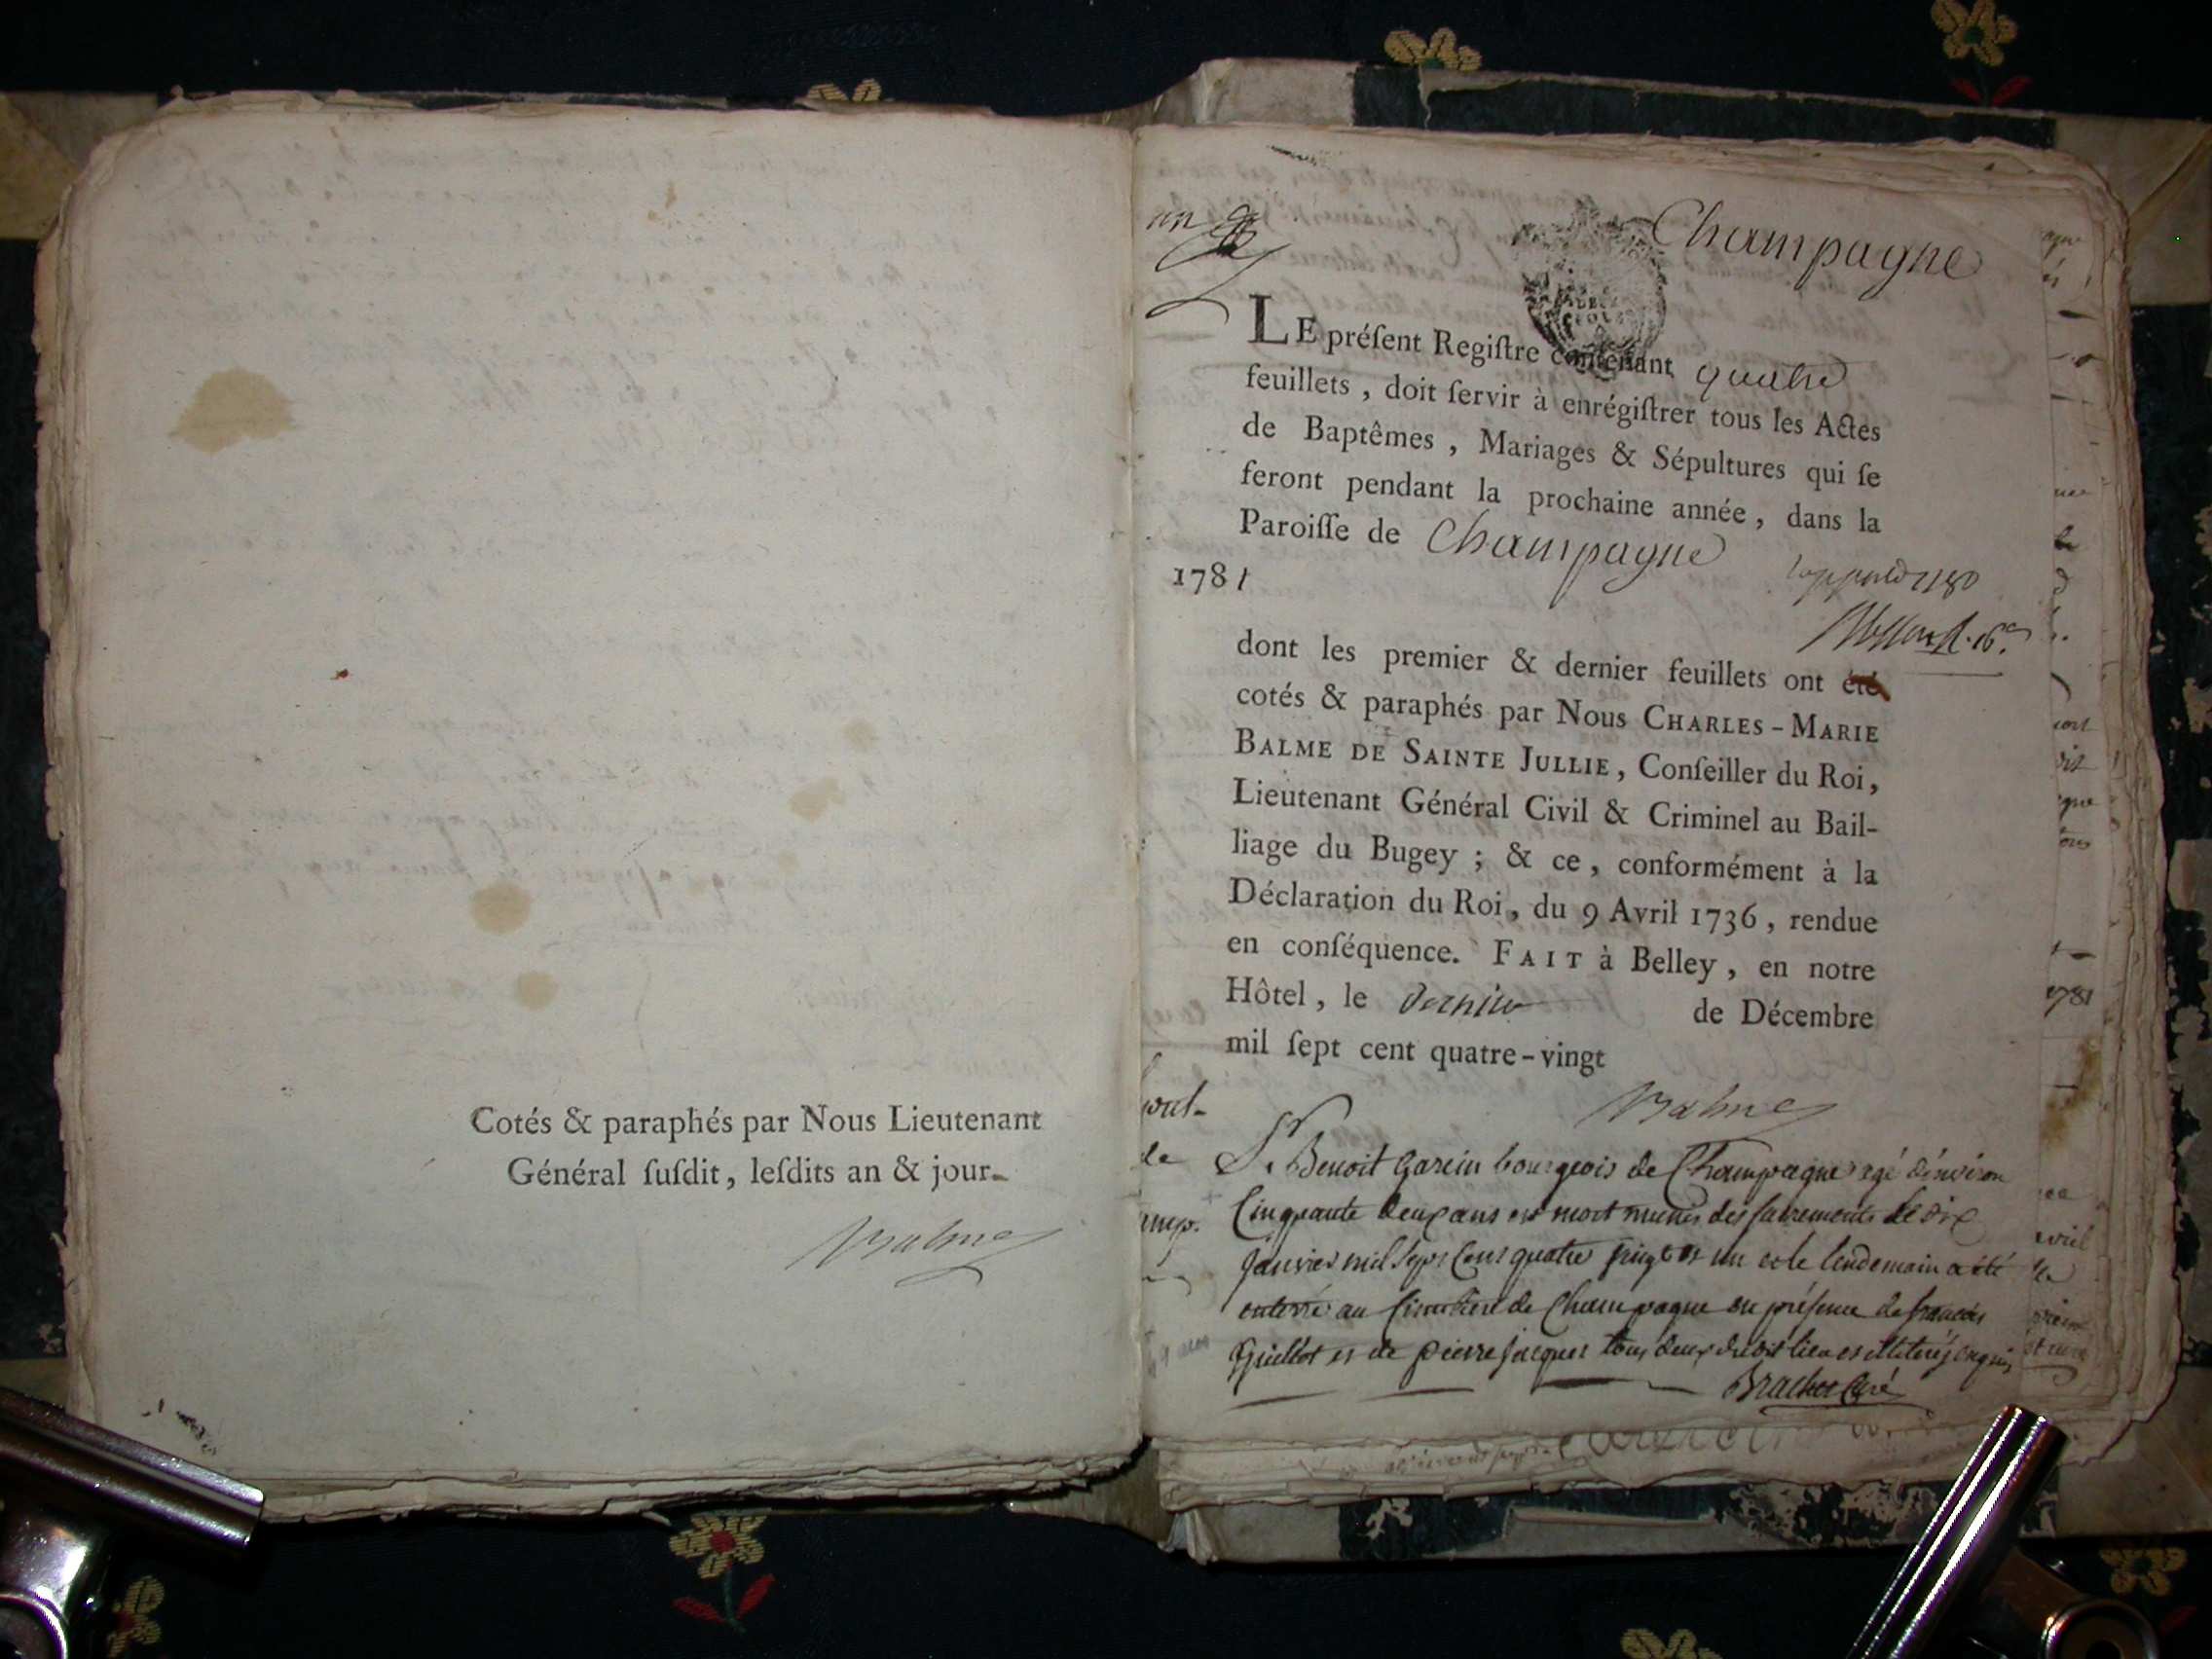 Cotés & paraphés par Nous Lieutenant
Général ſuſdit, leſdits an & jour.
Balme
un
Champagne
LE préſent Regiſtre contenant quatre
feuillets, doit ſervir à enrégiſtrer tous les Actes
de Baptêmes, Mariages & Sépultures qui ſe
feront pendant la prochaine année, dans la
Paroiſſe de Champagne
1781
1780
dont les premier & dernier feuillets ont été
cotés & paraphés par Nous CHARLES-MARIE
BALME DE SAINTE JULLIE, Conſeiller du Roi,
Lieutenant Général Civil & Criminel au Bail-
liage du Bugey ; & ce, conformément à la
Déclaration du Roi, du 9 Avril 1736, rendue
en conſéquence. FAIT à Belley, en notre
Hôtel, le dernier de Décembre
mil ſept cent quatre-vingt
Balme
Sr. Benoit Garin bourgeois de Champagne agé d'environ
Cinquante deux ans est mort munis des sacrements le dix
janvier mil sept cent quatre vingt et un et le lendemain a été
enterré au Cimetiere de Champagne en présence de francois
Guillot et de pierre jacques tous deux dudit lieu et illiterés enquis
Brachet Curé